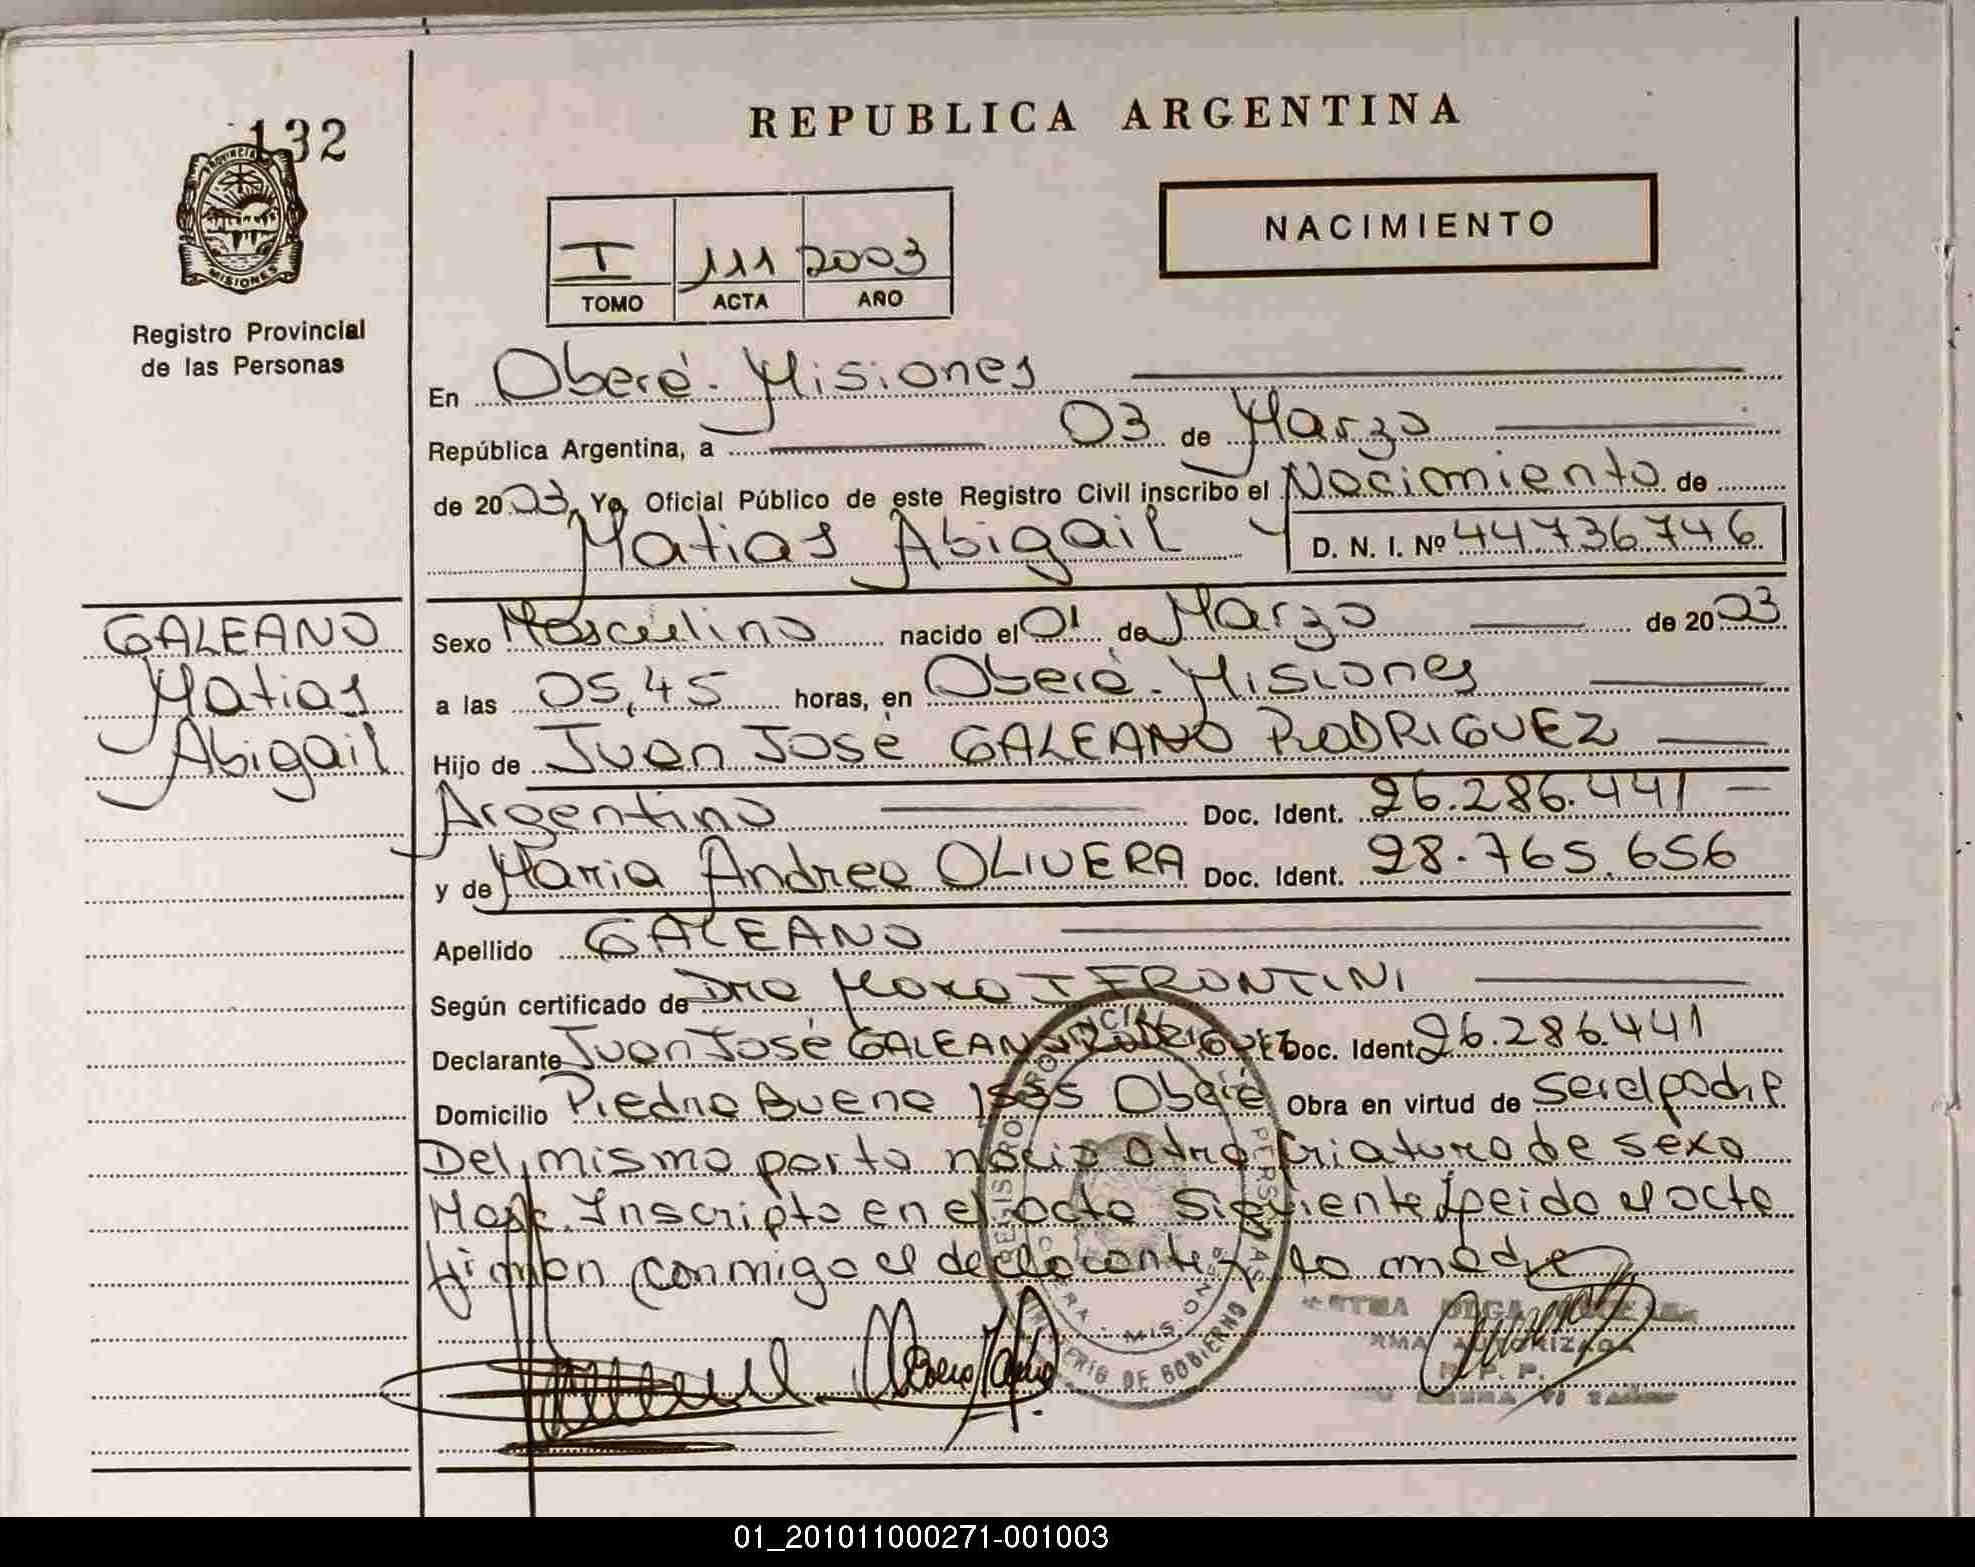 132
PROVINCIA
MISIONES
Registro Provincial
de las Personas
REPUBLICA ARGENTINA
NACIMIENTO
I 111 2003
TOMO ACTA AÑO
En Oberá - Misiones
República Argentina, a 03 de Marzo
de 2003, Yo, Oficial Público de este Registro Civil inscribo el Nacimiento de
Matias Abigail D. N. I. Nº 44736746
GALEANO
Matias
Abigail
Sexo Masculino nacido el 01 de Marzo de 2003
a las 05,45 horas, en Oberá - Misiones
Hijo de Juan José GALEANO RODRIGUEZ
Argentino Doc. Ident. 26.286.441
y de Maria Andrea OLIVERA Doc. Ident. 28.765.656
Apellido GALEANO
Según certificado de Dra FRONTINI
Declarante Juan José GALEANO RODRIGUEZ Doc. Ident. 26.286.441
Domicilio Piedra Buena Oberá Obra en virtud de ser el padre
Del mismo parto nació otra criatura de sexo
Masc. Inscripta en el acta siguiente leido el acta
firman conmigo el declarante y la madre
OLGA
AUTORIZADA
R. P. P.
MINISTERIO DE GOBIERNO
01_201011000271-001003